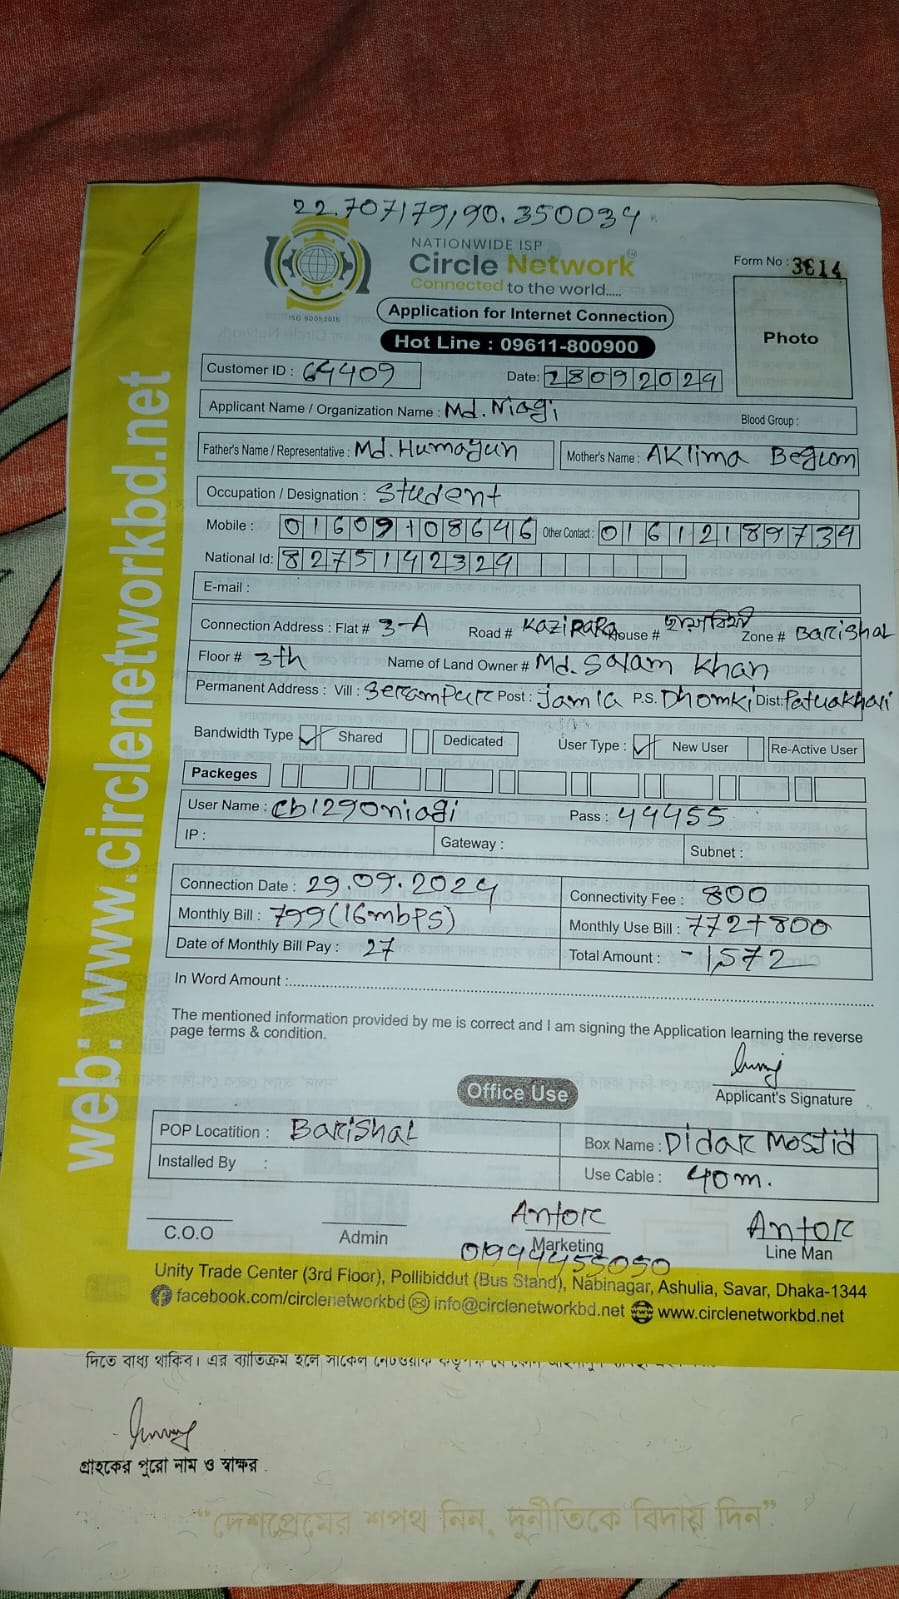 22.707179,90.350034
NATIONWIDE ISP
Circle Network
Connected to the world.....
ISO 9001:2015
Form No : 3614
Photo
Application for Internet Connection
Hot Line : 09611-800900
Customer ID : 64409
Date: 28092024
Applicant Name / Organization Name : Md. Niagi
Blood Group :
Father's Name / Representative : Md. Humayun Mother's Name : AKlima Begum
Occupation / Designation : Student
Mobile : 01609108646 Other Contact : 01612189734
National Id: 8275142324
E-mail :
Connection Address : Flat # 3-A Road # KaziPaRa House # Zone # BaRiShaL
Floor # 3th Name of Land Owner # Md. Salam Khan
Permanent Address : Vill : SeRamPuR Post : Jamla P.S. Dhomki Dist: Patuakhali
Bandwidth Type Shared Dedicated User Type : New User Re-Active User
Packeges
User Name : cb1290niagi Pass : 44455
IP : Gateway : Subnet :
Connection Date : 29.09.2024 Connectivity Fee : 800
Monthly Bill : 799 (16mbPS) Monthly Use Bill : 772+800
Date of Monthly Bill Pay : 27 Total Amount : - 1572
In Word Amount :
The mentioned information provided by me is correct and I am signing the Application learning the reverse
page terms & condition.
Applicant's Signature
Office Use
POP Locatition : BaRiShaL Box Name : DidaR Mosjid
Installed By : Use Cable : 40m.
AntoR AntoR
C.O.O Admin Marketing Line Man
01944455050
Unity Trade Center (3rd Floor), Pollibiddut (Bus Stand), Nabinagar, Ashulia, Savar, Dhaka-1344
facebook.com/circlenetworkbd info@circlenetworkbd.net www.circlenetworkbd.net
web: www.circlenetworkbd.net
দিতে বাধ্য থাকিব। এর ব্যতিক্রম হলে সার্কেল নেটওয়ার্ক
গ্রাহকের পুরো নাম ও স্বাক্ষর
“দেশপ্রেমের শপথ নিন, দুর্নীতিকে বিদায় দিন”